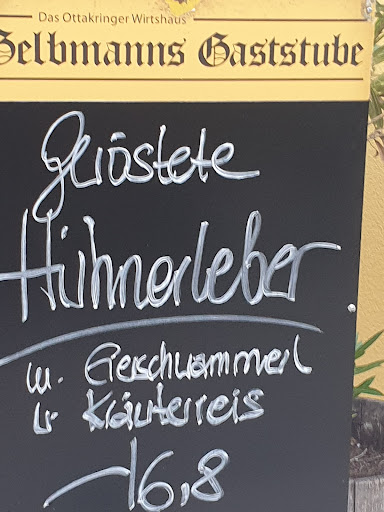 Das Ottakringer Wirtshaus
Selbmanns Gaststube
Geröstete
Hühnerleber
m. Eierschwammerl
u. Kräuterreis
16,8